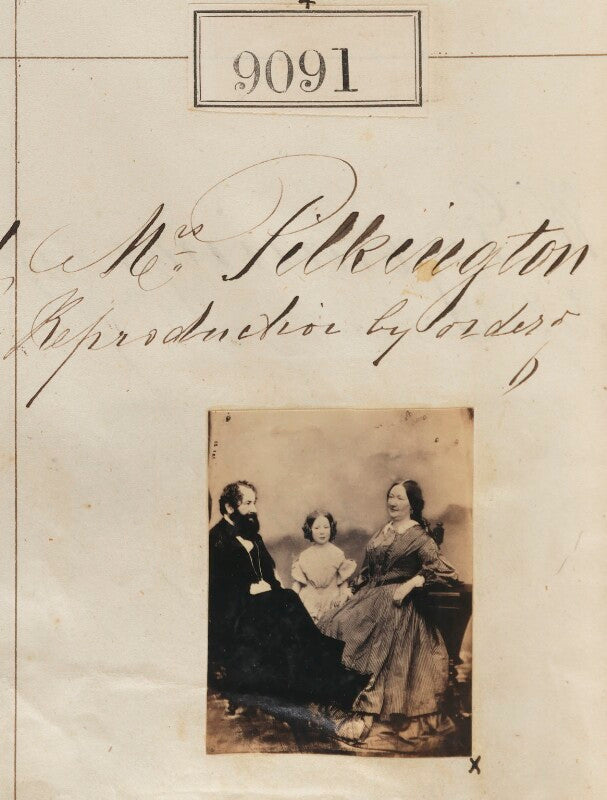 9091
Mrs Pilkington
Reproduction by order
x